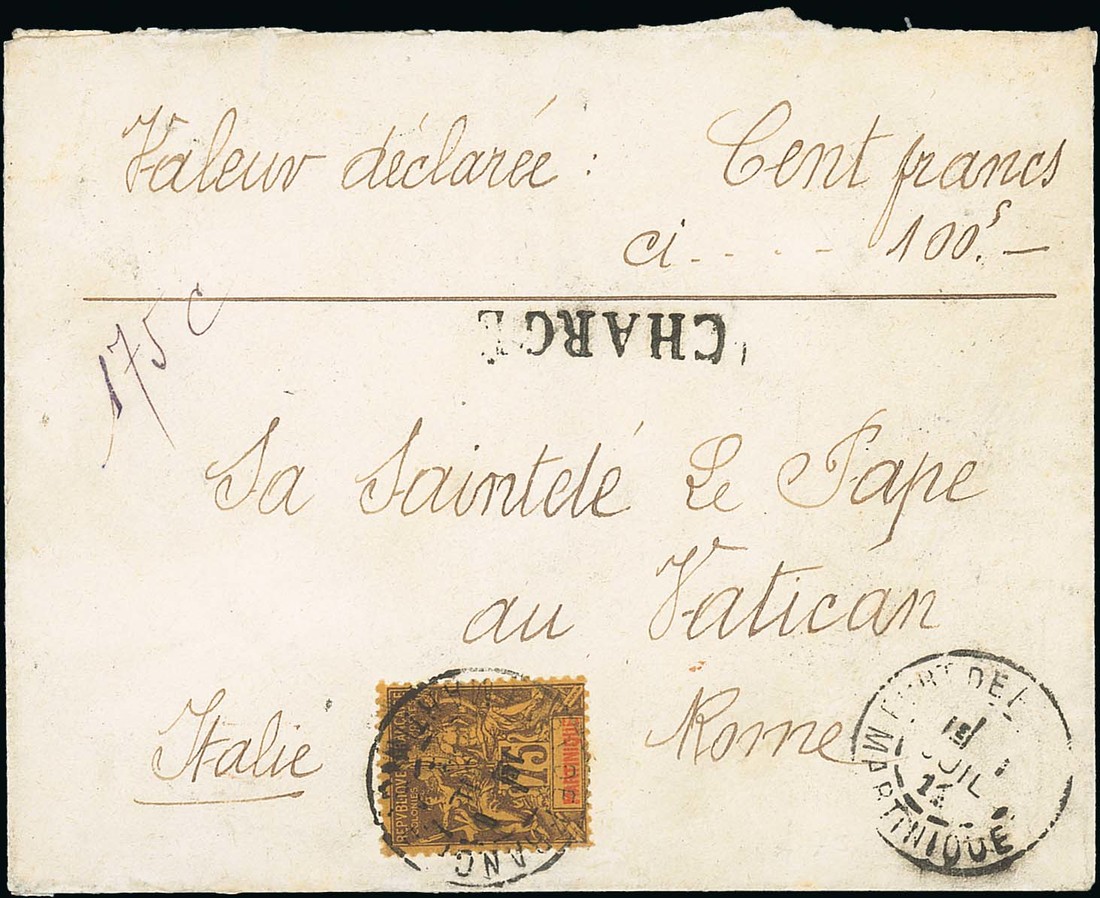 Valeur déclarée : Cent francs
ci . . . . 100f.—
175 c
CHARGÉ
Sa Saintelé Le Pape
au Vatican
Rome
Italie
REPUBLIQUE FRANÇAISE
COLONIES
75
MARTINIQUE
FORT DE F
JUIL
MARTINIQUE